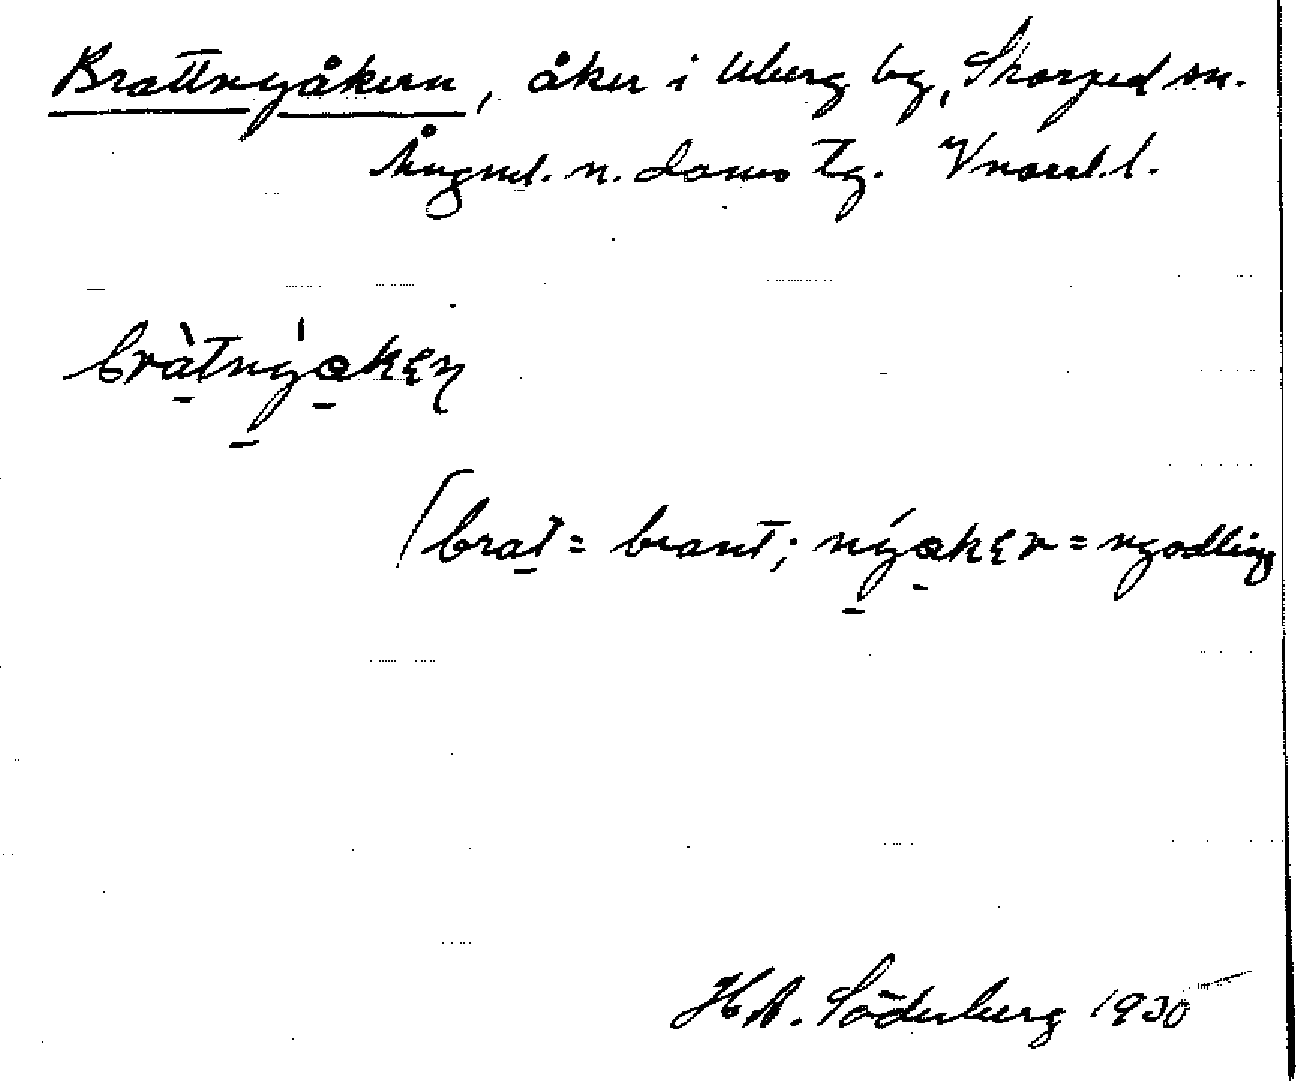 Brattnyåkern, åker i Uberg by, Skorped sn.
Ångml. n. doms tg. Vnorrl. l.
bràtnýɑkɛn
(brat = brant; nýɑkɛr = nyodling
H.A. Söderberg 1935